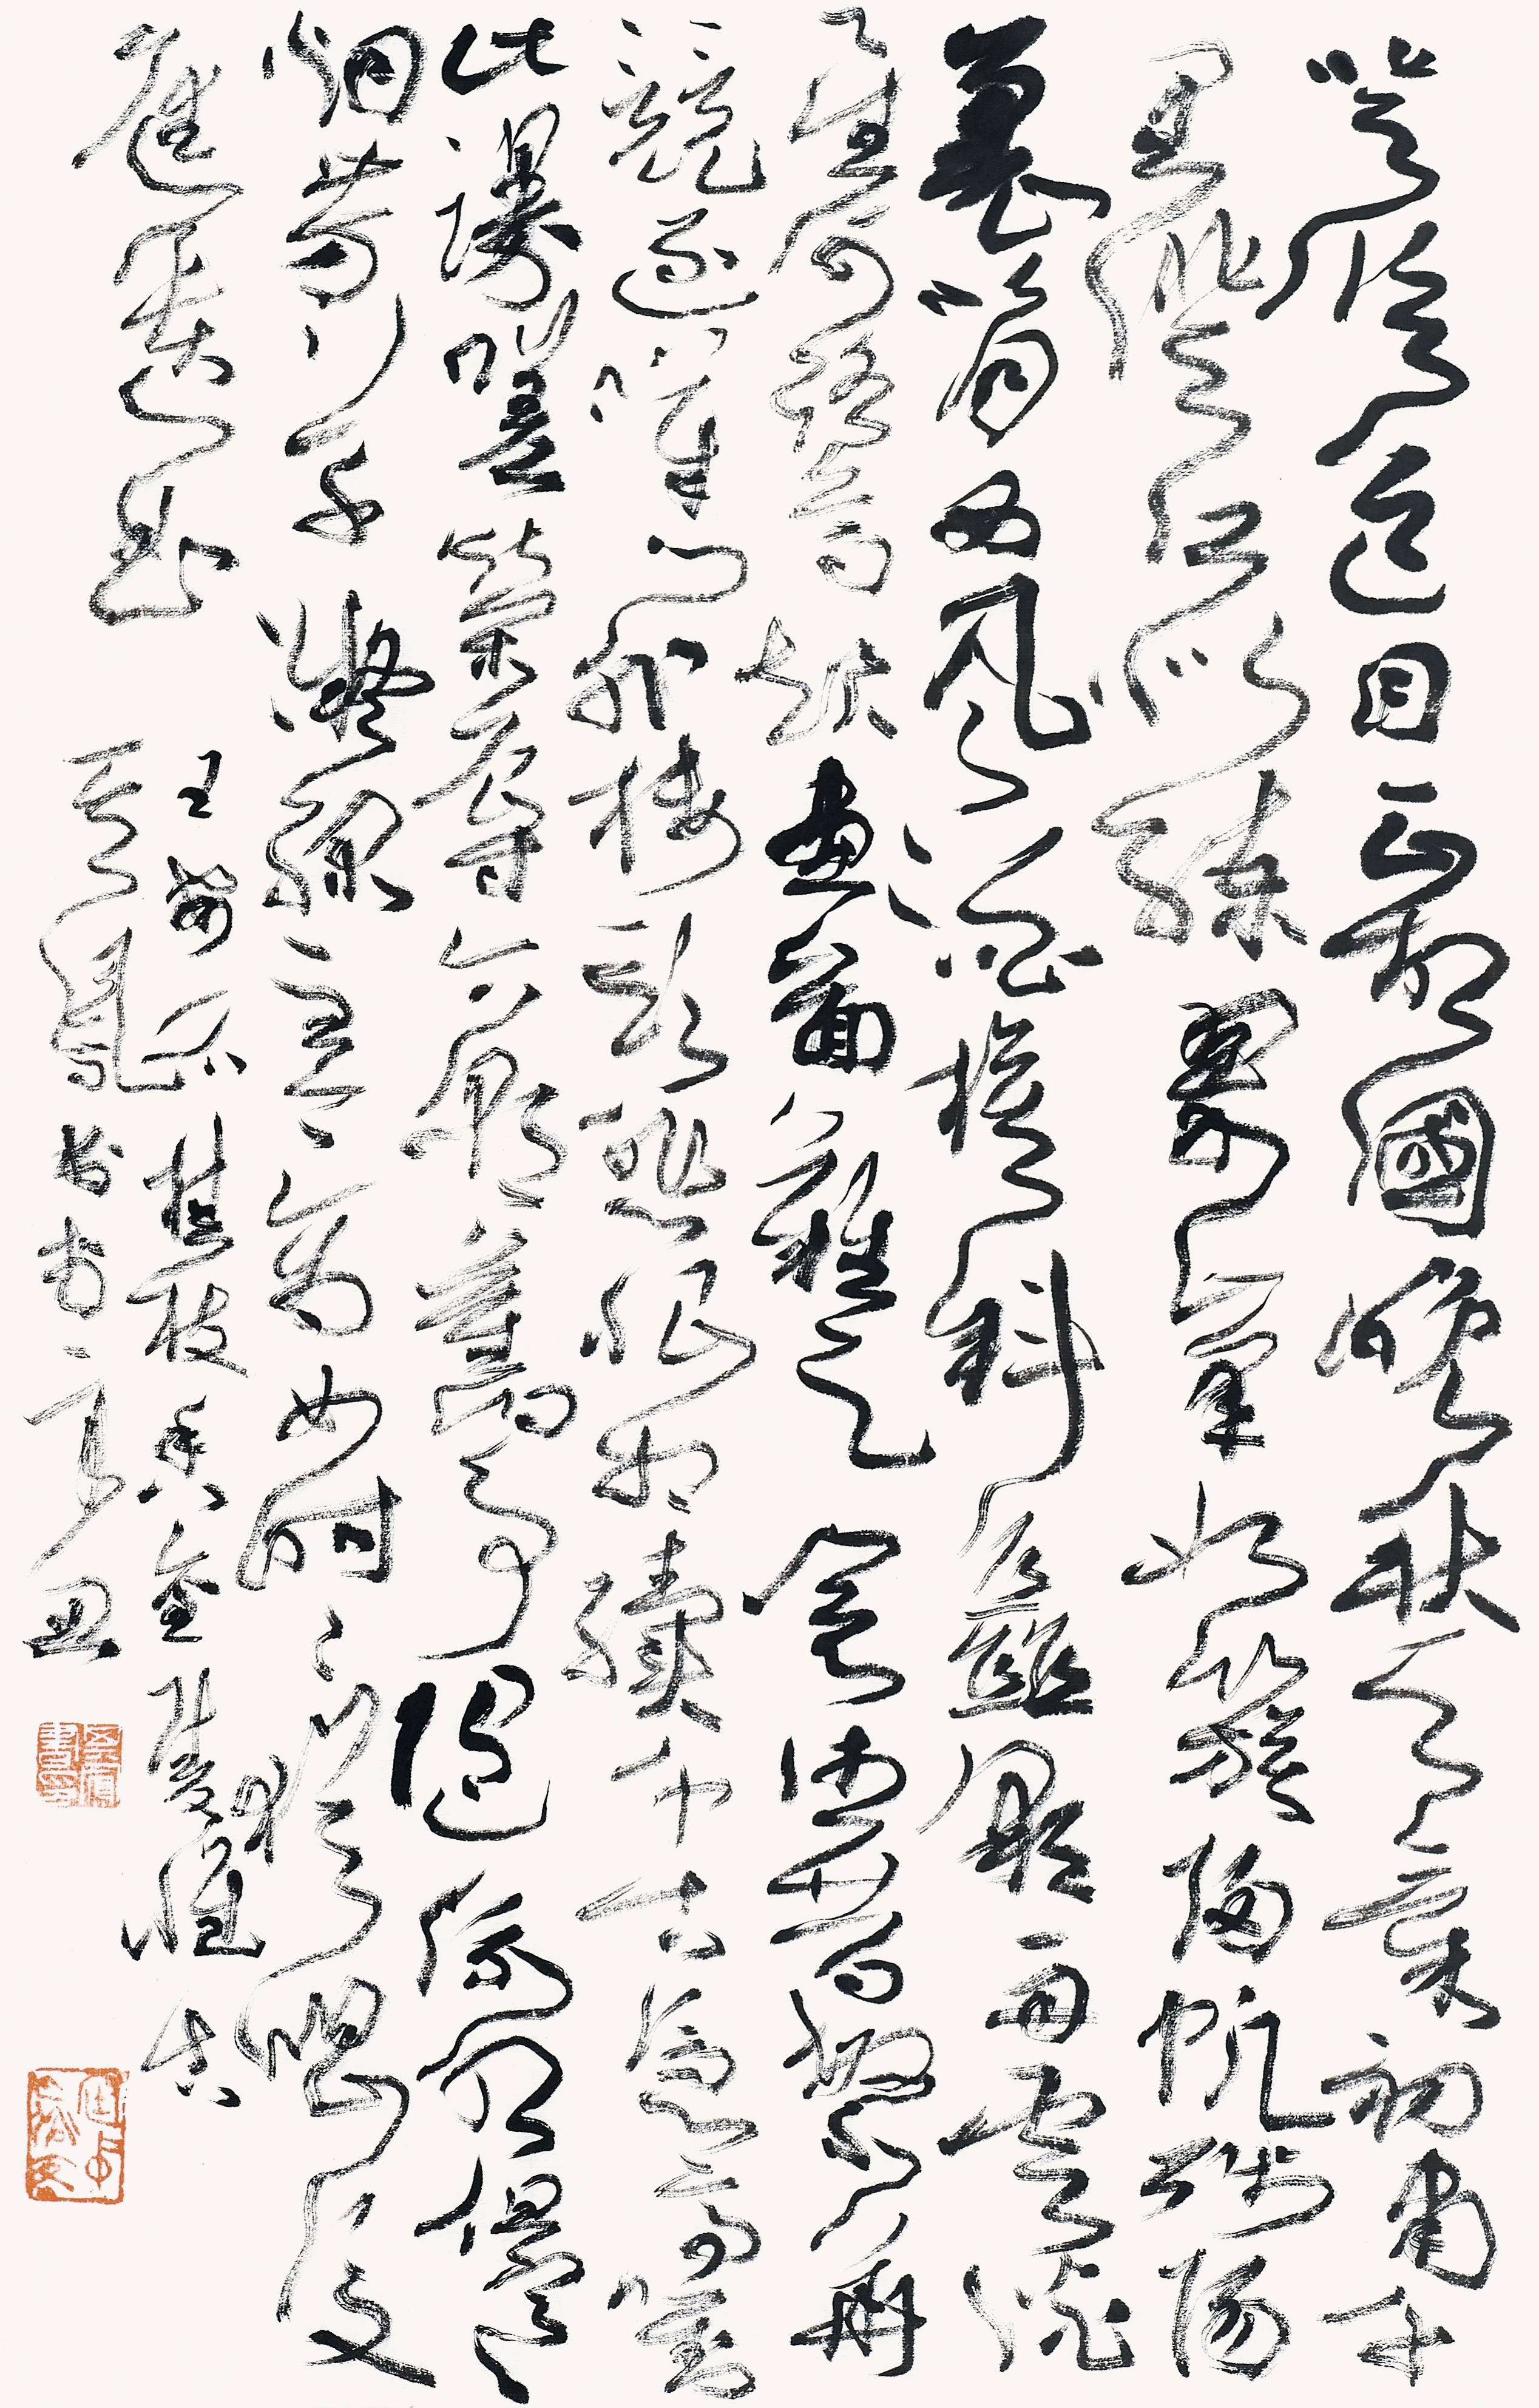 登臨送目正故國晚秋天氣初肅千
里澄江似練翠峯如簇歸帆殘陽
裏背西風酒旗斜矗彩舟雲淡
星河鷺起畫圖難足念往昔繁華
競逐嘆門外樓頭悲恨相續千古憑高對
此謾嗟榮辱六朝舊事隨流水但寒
煙芳草凝綠至今商女時時猶唱後
庭遺曲
王安石桂枝香金陵懷古
書辛丑